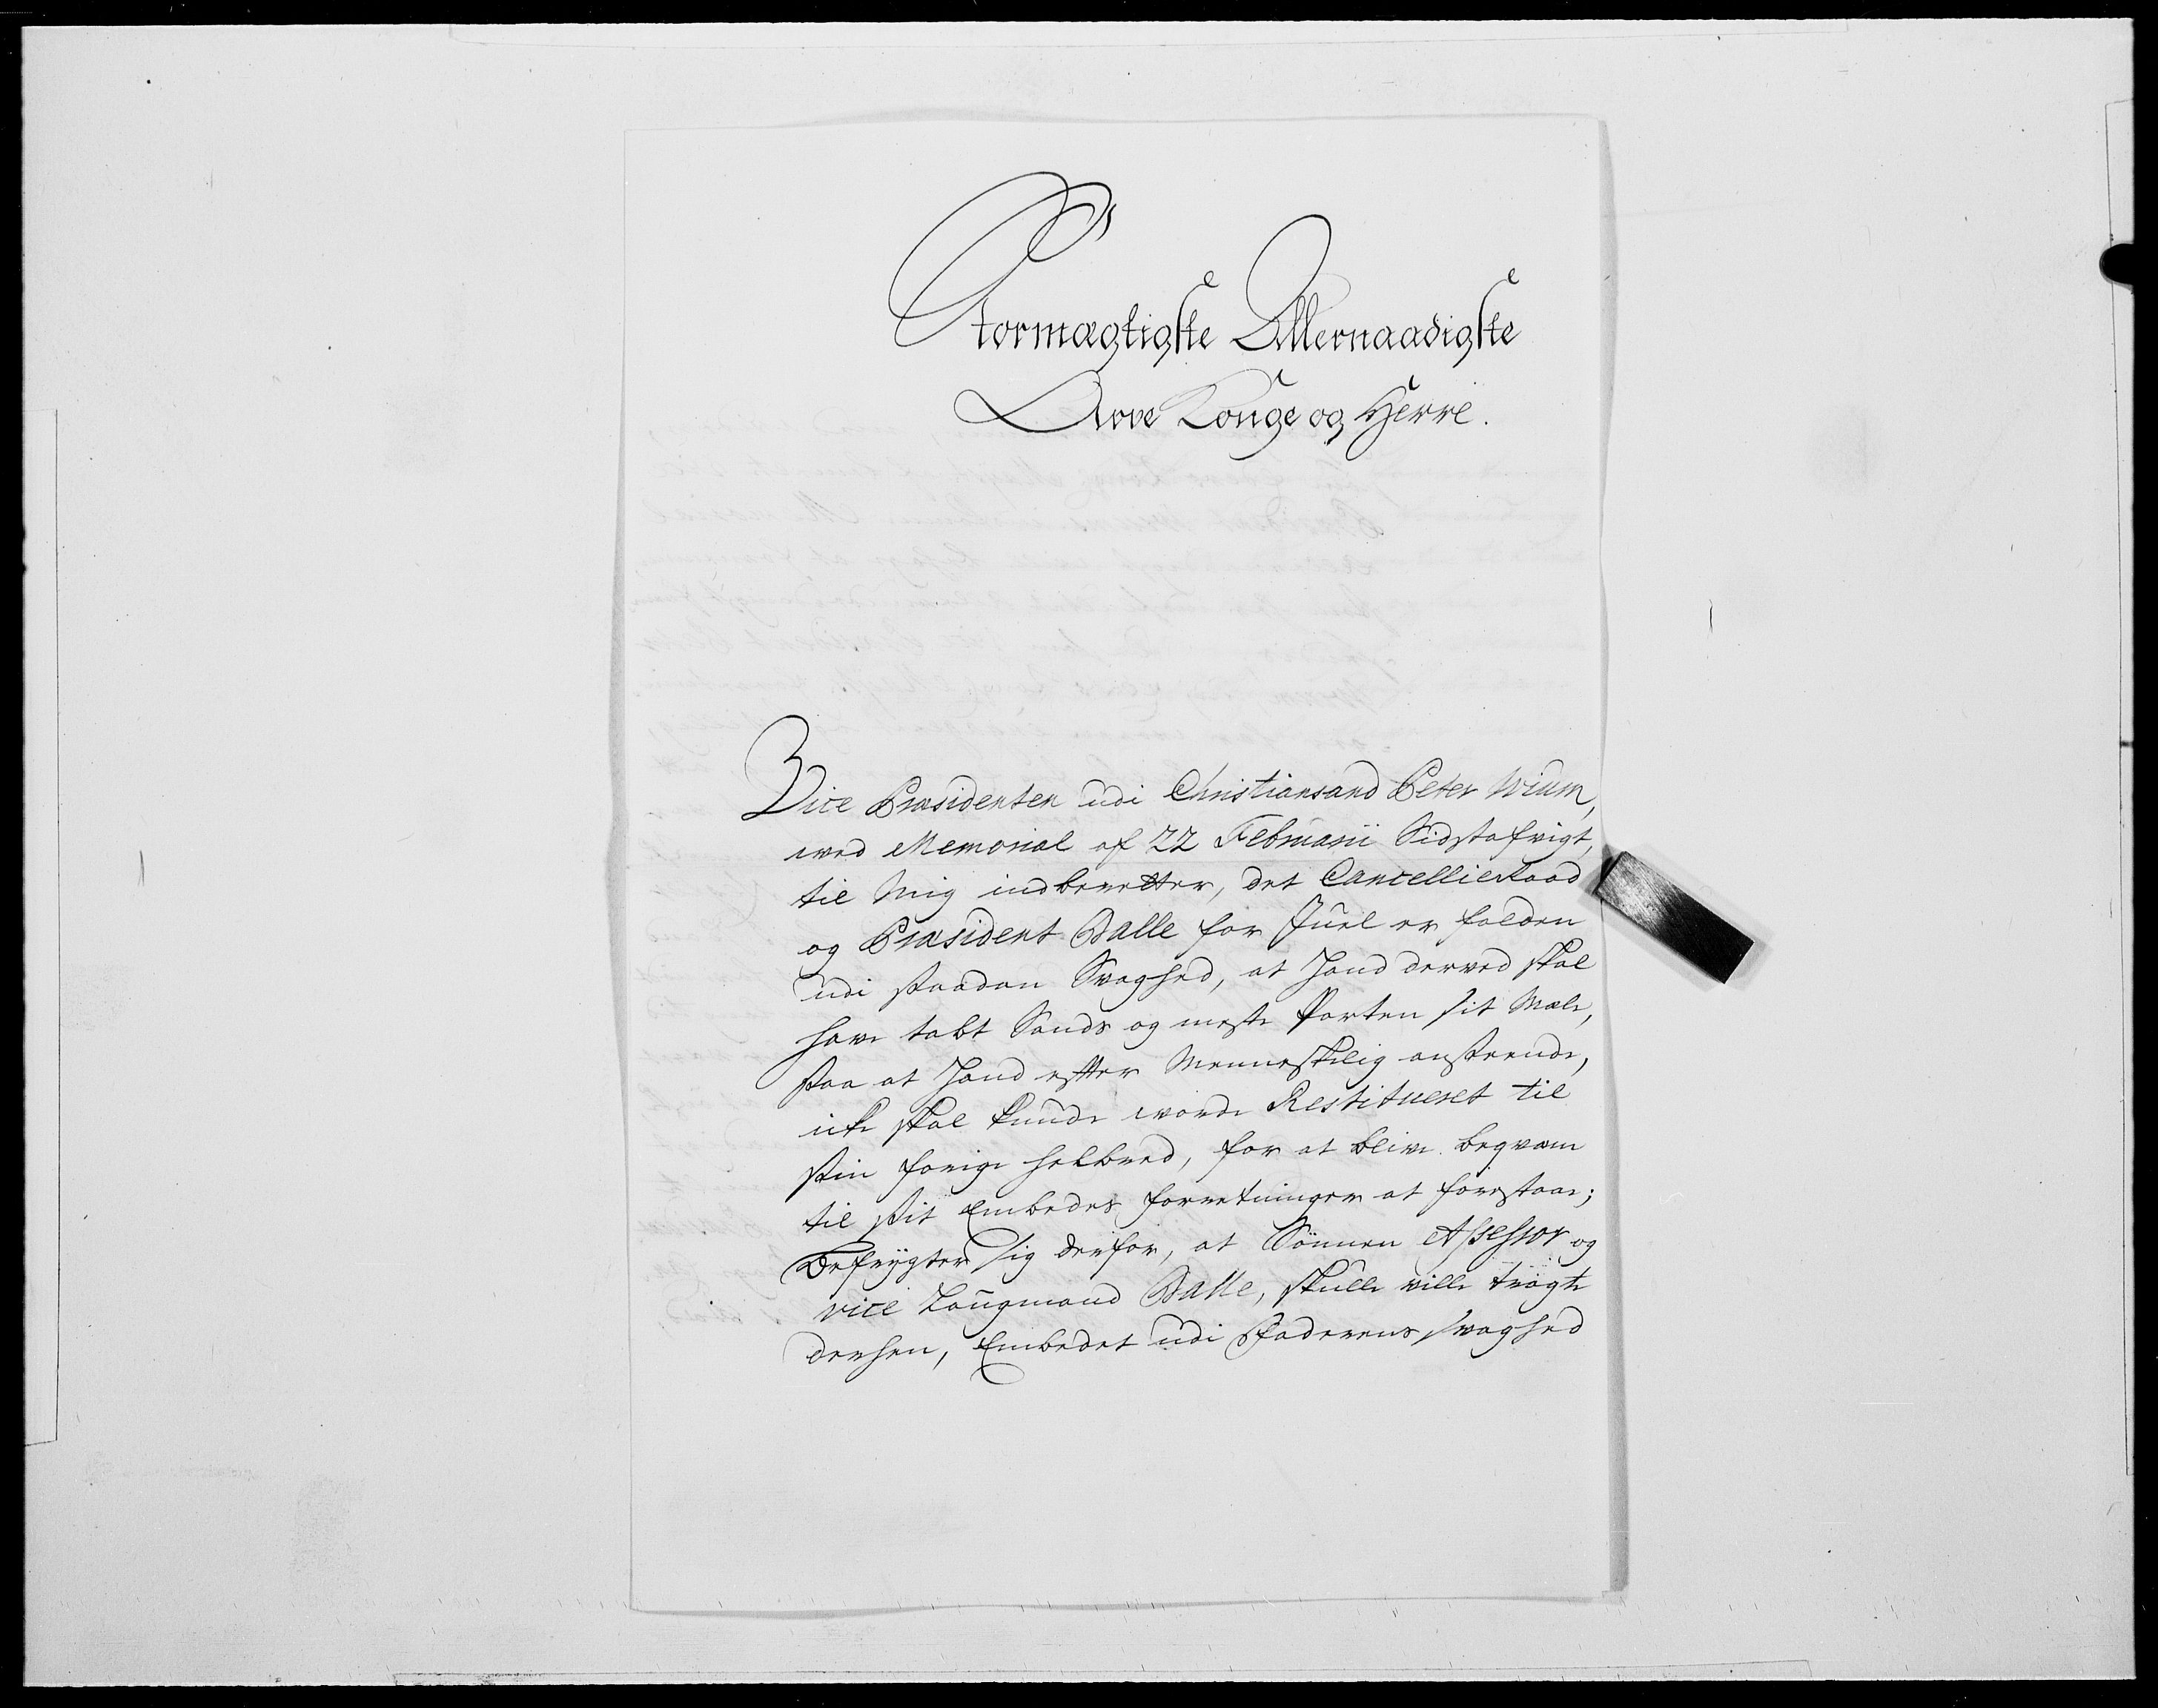 Stormægtigste Allernaadigste
Arve Konge og Herre.
Vice Præsidenten udi Christiansand Peter Wium,
wed Memorial af 22 Februarii Sidstafvigt,
til Mig indberetter, det CancellieRaad
og Præsident Balle for Juel er falden
udi saadan Svaghed, at Hand derved skal
have tabt Sands og meste Parten sit Mæle,
saa at Hand efter Menneskelig anseende,
icke skal kunde worde Restitueret til
sin forige helbred, for at blive beqvæm
til sit Embedes forretninger at forestaae;
Befrygter sig derfor, at Sönnen Assessor og
vice Laugmand Balle, skulle ville tragte
derhen, Embedet udi Faderens svaghed